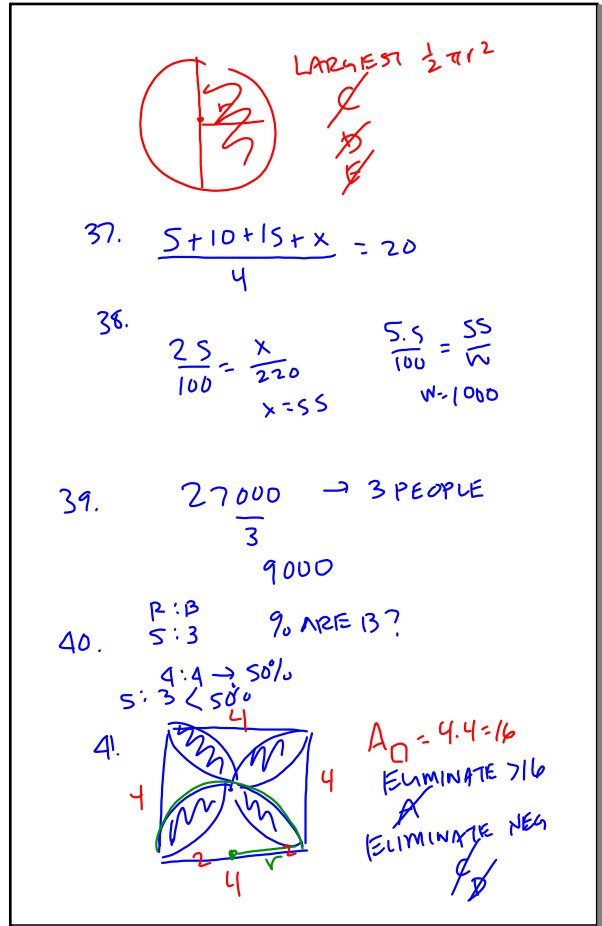 LARGEST ½ πr²
C
D
E
37. (5+10+15+x)/4 = 20
38. 25/100 = x/220
x=55
5.5/100 = 55/W
W=1000
39. 27000/3 → 3 PEOPLE
9000
40. R:B
5:3
% ARE B?
4:4 → 50%
5:3 < 50%
41.
4
4
4
2
2
r
4
A□ = 4.4=16
ELIMINATE >16
A
ELIMINATE NEG
C
D